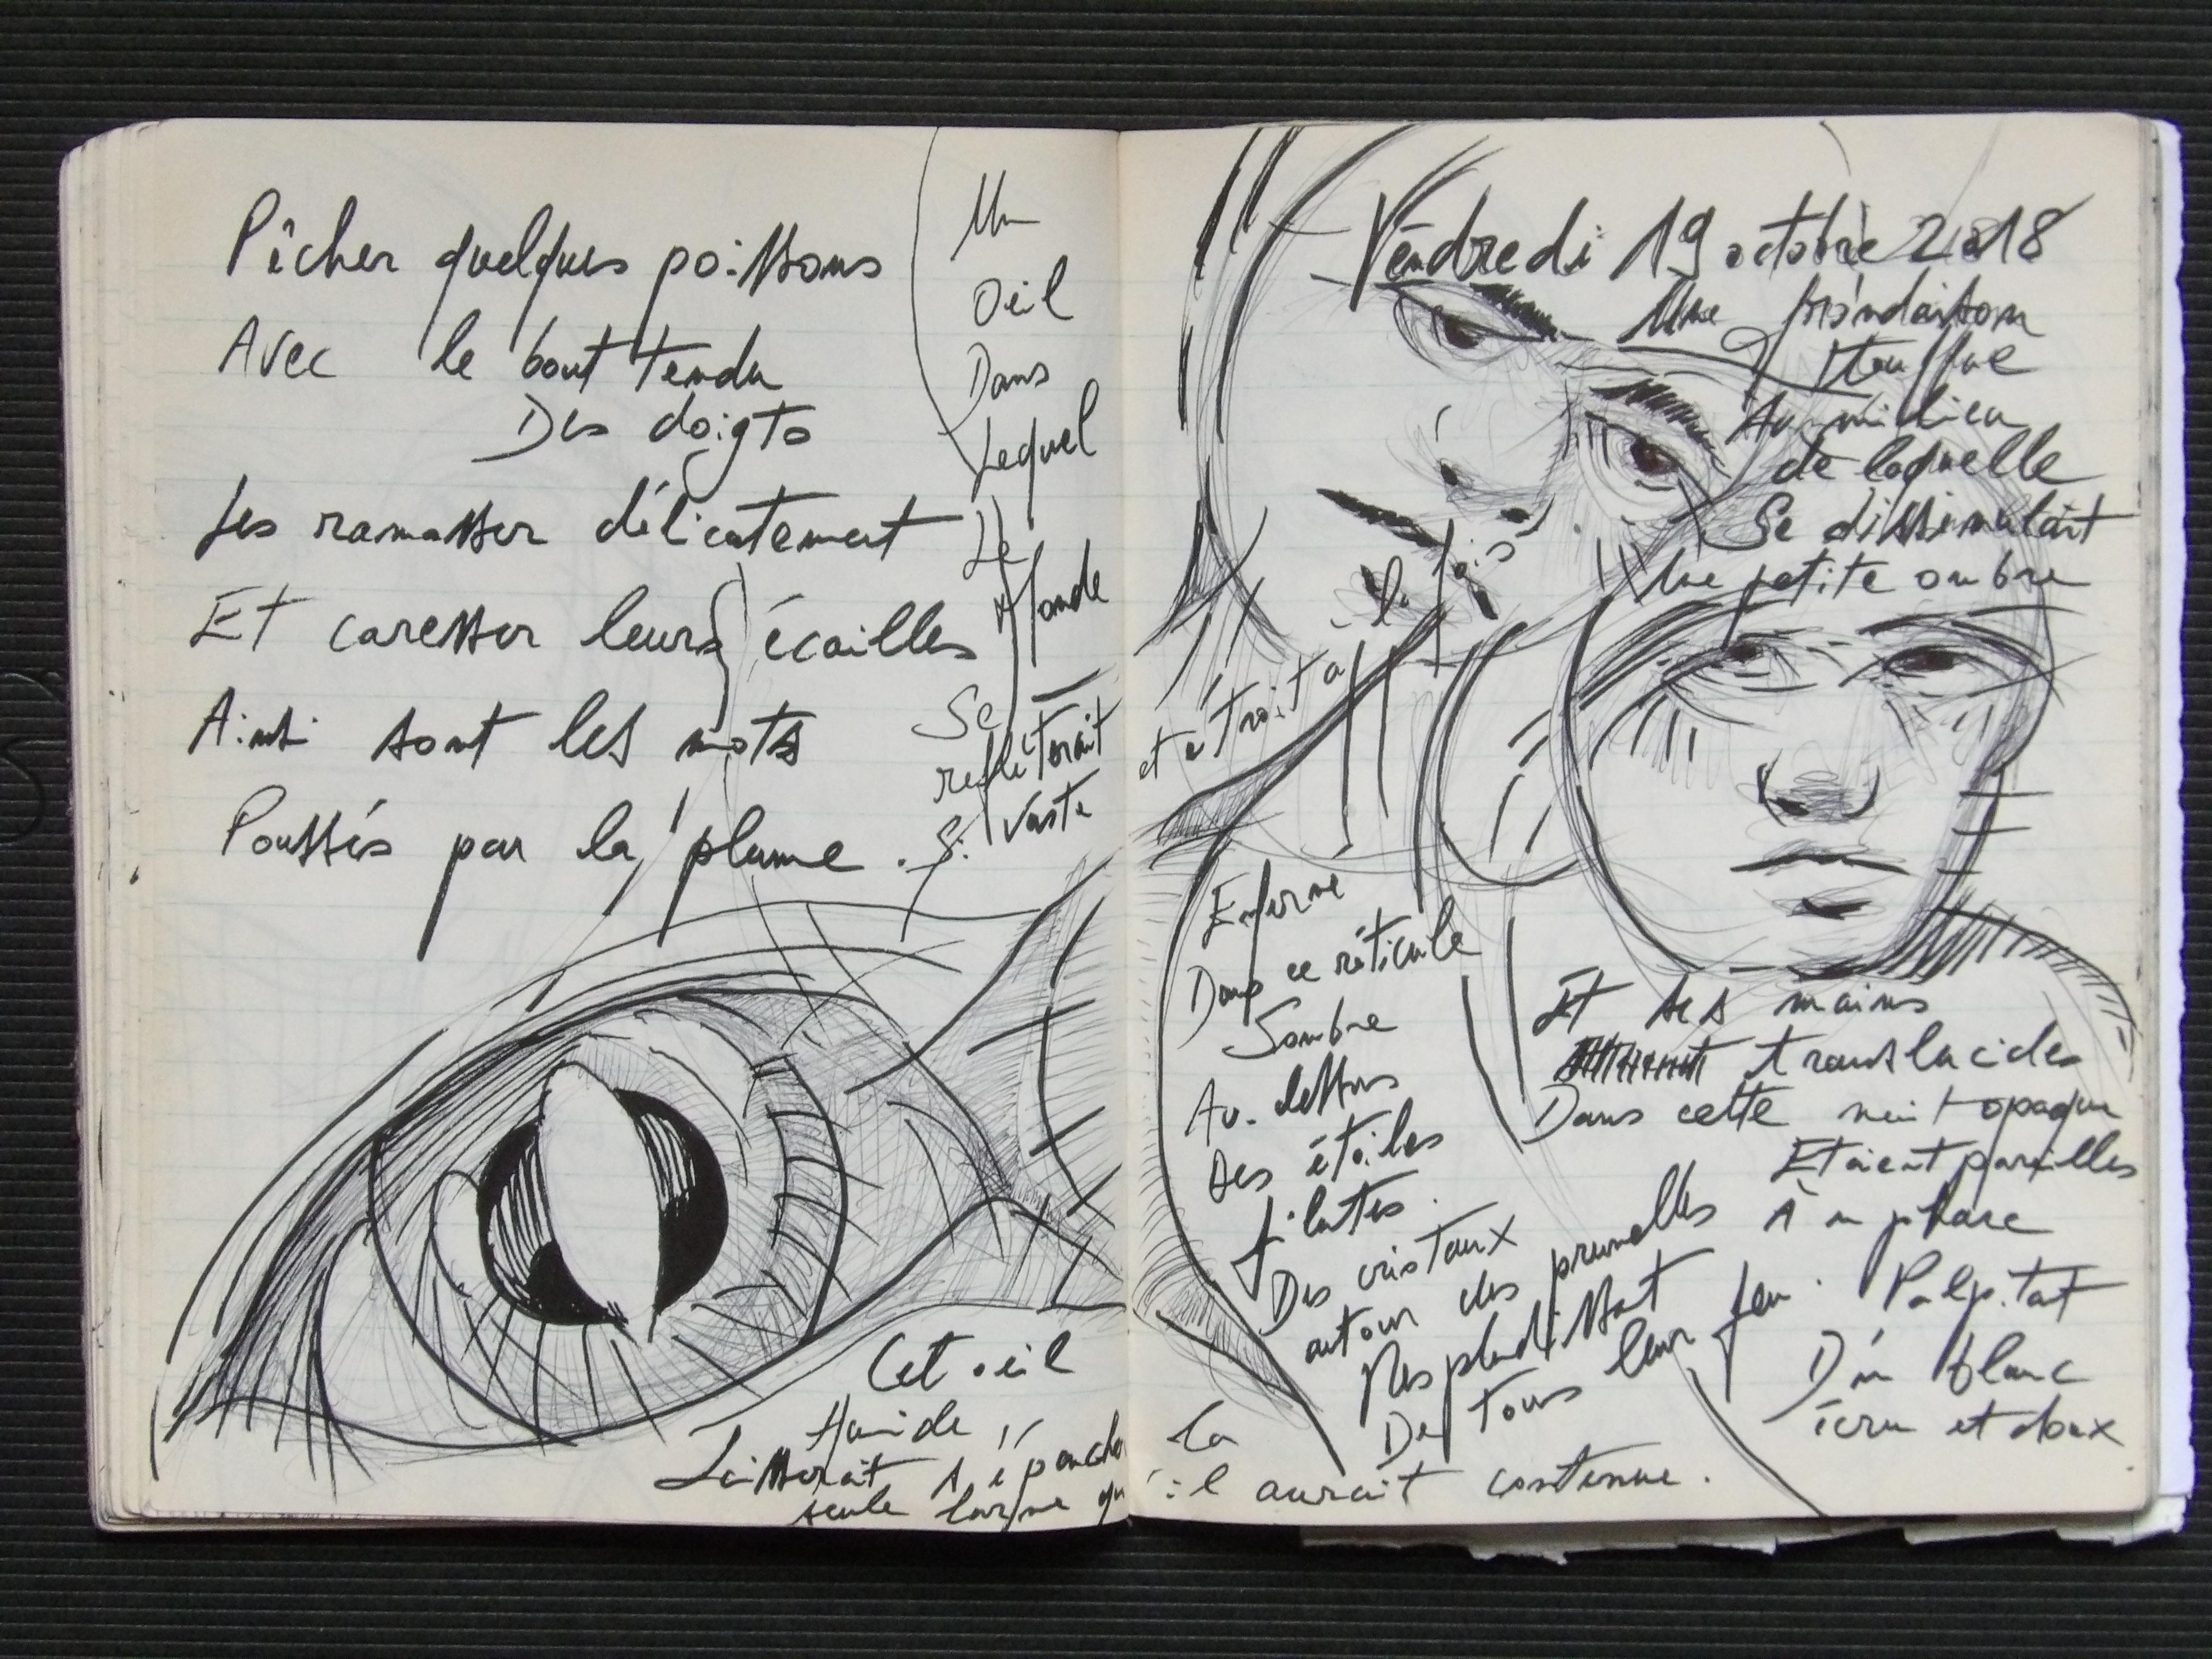 Pêcher quelques poissons
Avec le bout tendu
Des doigts
Les ramasser délicatement
Et caresser leurs écailles
Ainsi sont les mots
Poussés par la plume.
Un
Oeil
Dans
Lequel
Le
Monde
Se
refléterait
Si vaste
et étroit à la fois
Cet oeil
Humide
Laisserait s'épancher la
seule larme qu'il aurait contenue.
Vendredi 19 octobre 2018
Une frondaison
touffue
Au milieu
de laquelle
Se dissimulait
Une petite ombre
Et ses mains
translucides
Dans cette nuit opaque
Etaient pareilles
À un phare
Palpitant
D'un blanc
écru et doux
Enfermé
Dans ce réticule
Sombre
Au-dessous
Des étoiles
filantes.
Des cristaux
autour des prunelles
Resplendissent
De tous leur feu.